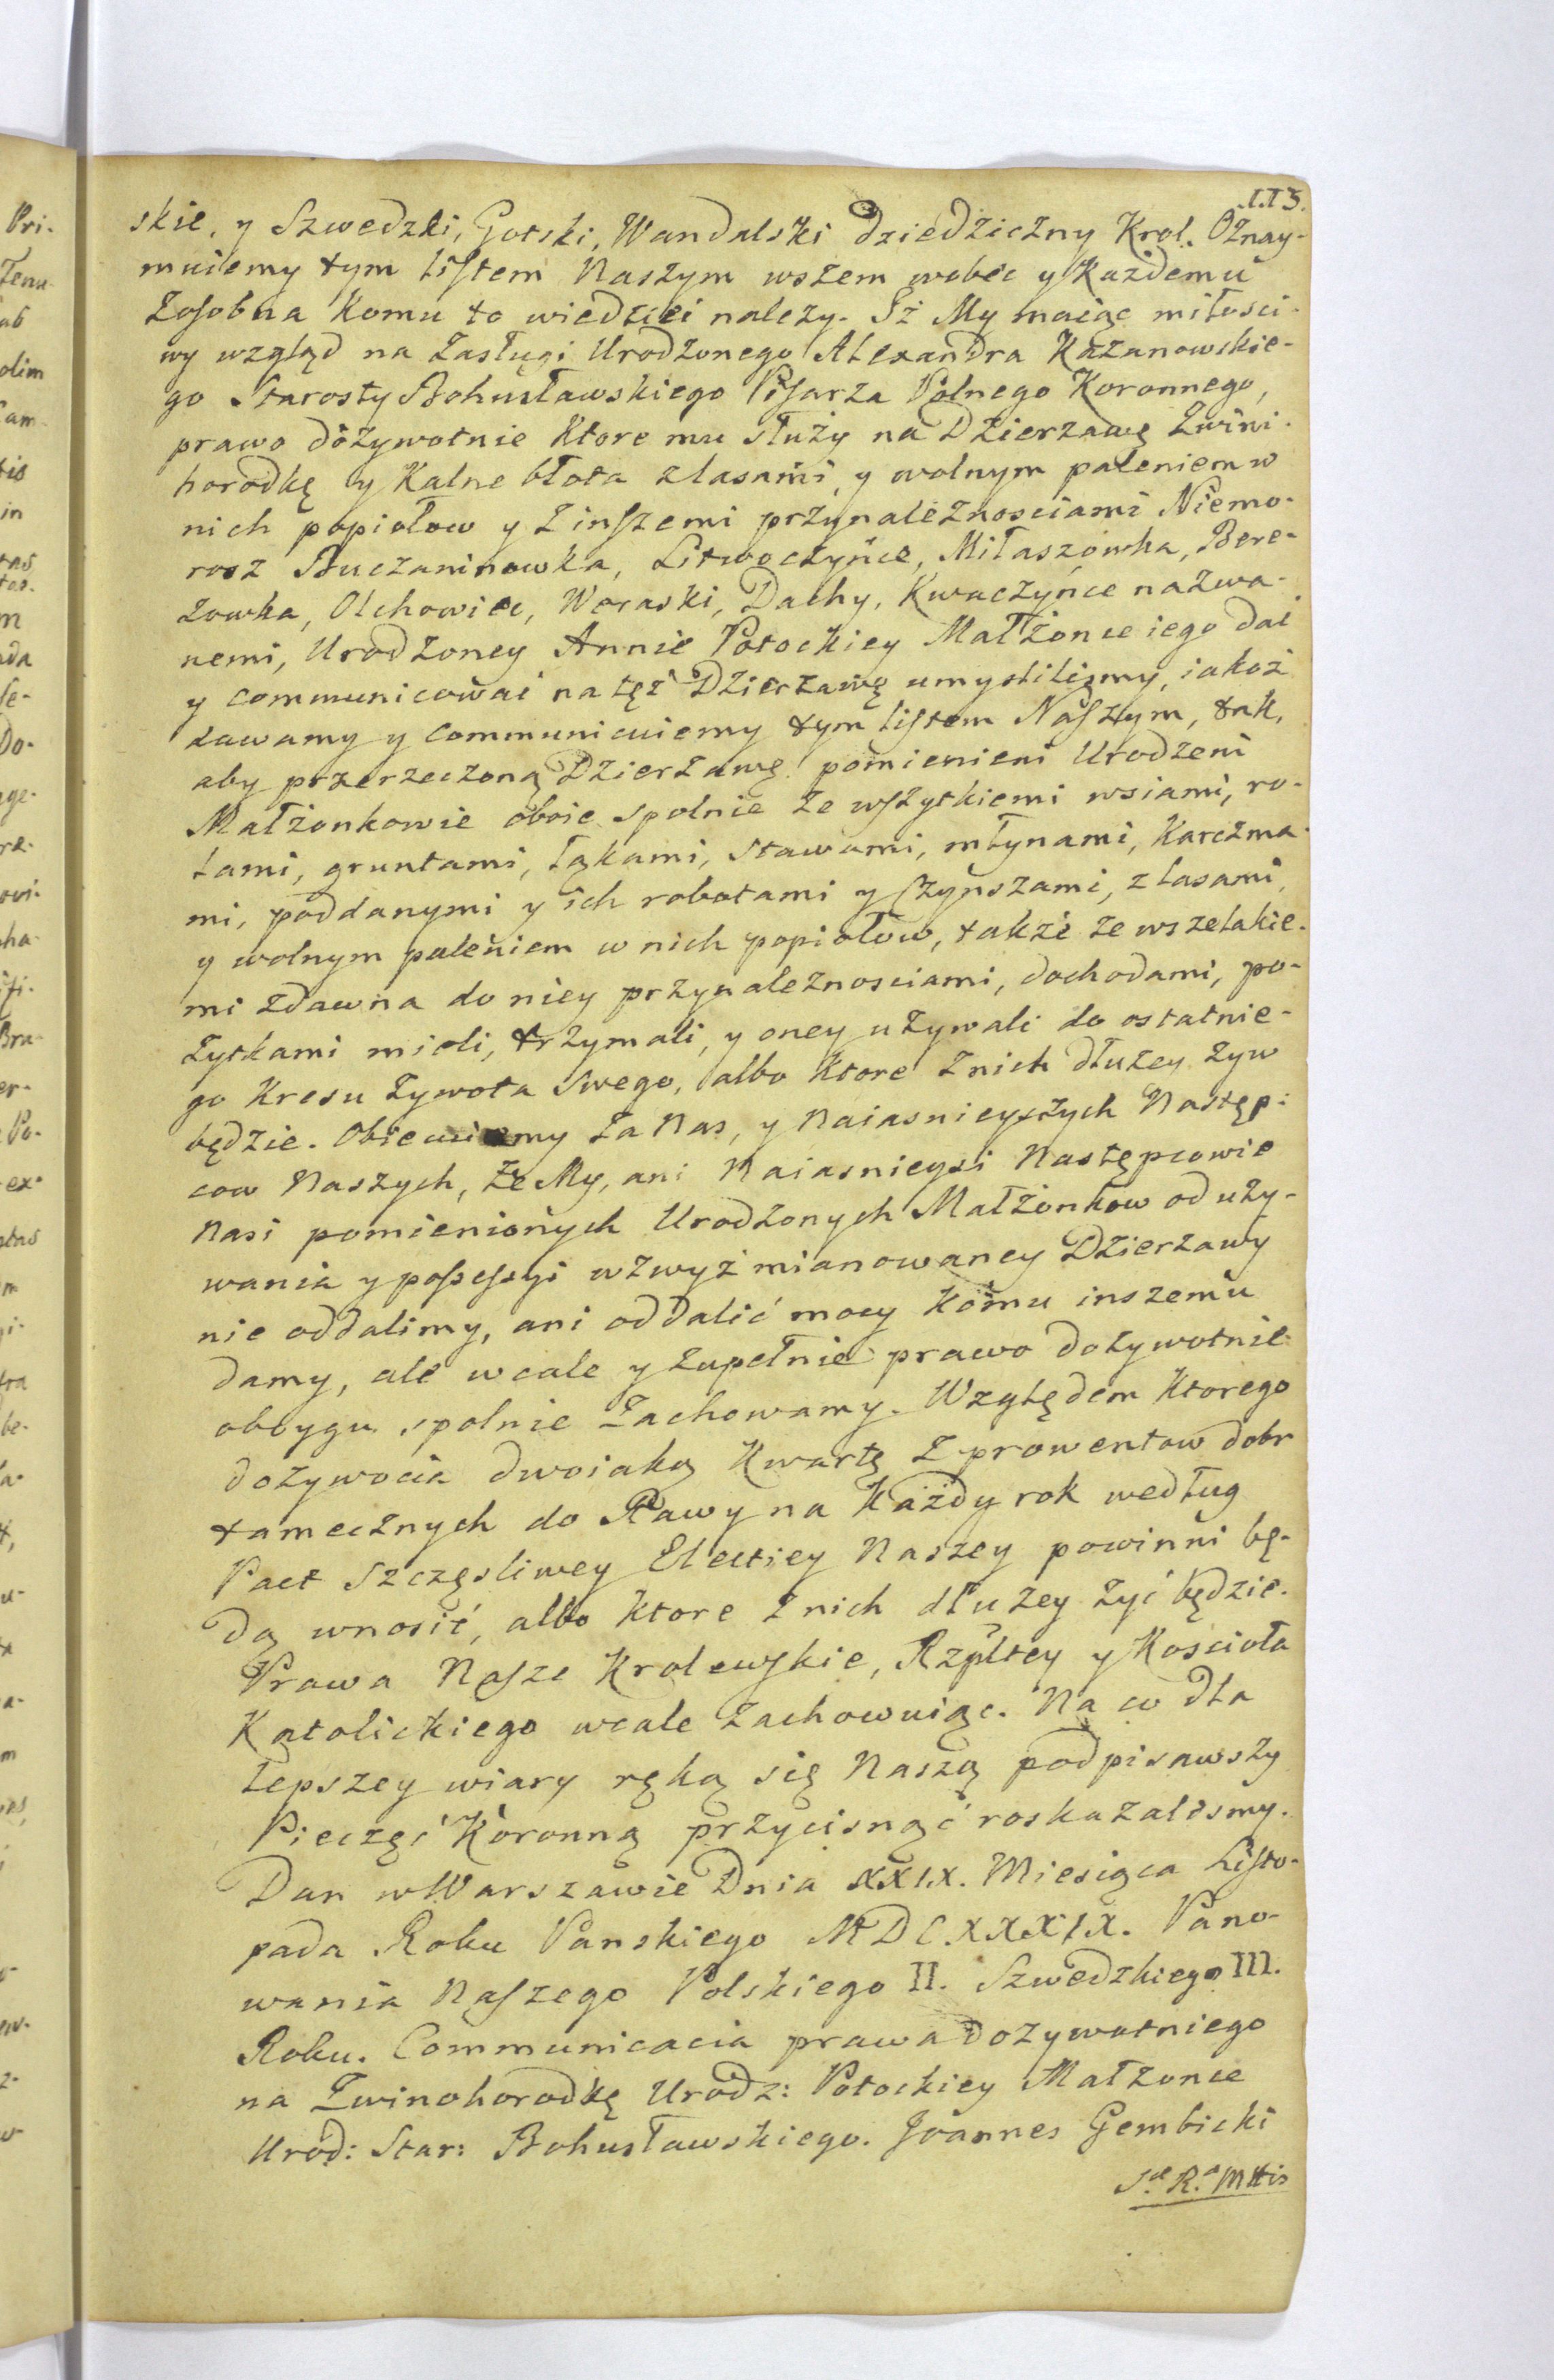 .1.13.
skie, y Szwedzki, Gotski, Wandalski dziedziczny Krol. Oznay-
muiemy tym listem Naszym wszem wobec y Kazdemu
Zosobna Komu to wiedziei nalezy. Jż My maiąc miłosci-
wy wzgląd na Zasługi Urodzonego Alexandra Kazanowskie-
go Starosty Bohusławskiego Pisarza Polnego Koronnego,
prawo dożywotnie Ktore mu służy na Dzierzawę Zwini-
horodkę y Kalne błota z lasami, y wolnym paleniem w
nich popiołow y z inszemi przynaleznosciami Niemo-
rosz Buczaninowka, Litwoczyńce, Miłaszowka, Bere-
zowka, Olchowiec, Woraski, Dachy, Kwaczyńce nazwa-
nemi, Urodzoney Annie Potockiey Małżonce iego dać
y communicować na tęż Dzierzawę umyslilismy, iakoż
dawamy y communicuiemy tym listem Naszym, tak,
aby przerzeczoną Dzierzawę pomienieni Urodzeni
Małżonkowie oboie spolnie ze wszytkiemi wsiami, ro-
lami, gruntami, łąkami, stawami, młynami, Karczma-
mi, poddanymi y ich robotami y Czynszami, z lasami,
y wolnym paleniem w nich popiołow, także ze wszelakie-
mi zdawna do niey przynaleznosciami, dochodami, po-
zytkami mieli, trzymali, y oney uzywali do ostatnie-
go Kresu Zywota Swego, albo Ktore z nich dłużey zyw
będzie. Obiecuiemy za Nas, y Naiasnieyszych Następ-
cow Naszych, że My, ani Naiasnieysi Następcowie
Nasi pomienionych Urodzonych Małżonkow od uzy-
wania y possessyi wzwyż mianowaney Dzierzawy
nie oddalimy, ani oddalić mocy komu inszemu
damy, ale wcale y zupełnie prawo dożywotnie
oboygu spolnie Zachowamy. Względem Ktorego
dożywocia dwoiaką Kwartę z prowentow dobr
tamecznych do Rawy na Każdy rok według
Pact szczęsliwey Elektiey Naszey powinni bę-
dą wnosić, albo Ktore z nich dłużey żyć będzie.
Prawa Nasze Krolewskie, Rzpltey y Kościoła
Katolickiego wcale zachowuiąc. Na co dla
lepszey wiary ręką się Naszą podpisawszy
Pieczęć Koronną przycisnąć roskazalismy.
Dan w Warszawie Dnia XXIX. Miesiąca Listo-
pada Roku Panskiego MDCXXXIX. Pano-
wania Naszego Polskiego II. Szwedzkiego III.
Roku. Communicacia prawa dozywotniego
na Zwinohorodkę Urodz: Potockiey Małzonce
Urod: Star: Bohusławskiego. Joannes Gembicki
S.ae R.a Mttis